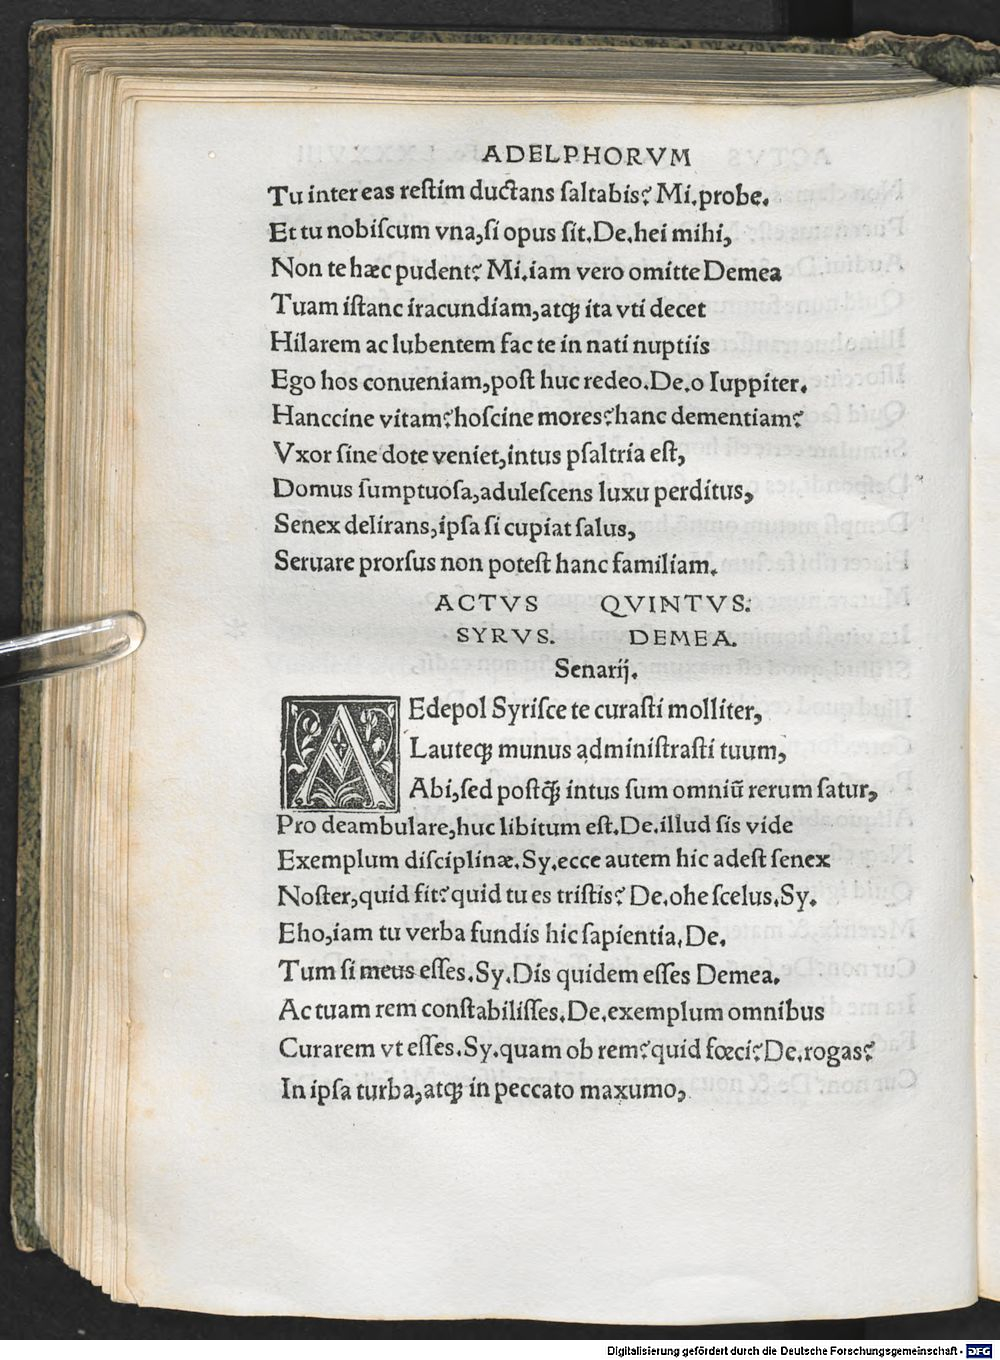 ADELPHORVM
Tu inter eas reſtim ductans ſaltabis? Mi.probe.
Et tu nobiſcum vna,ſi opus ſit.De.hei mihi,
Non te hæc pudent? Mi.iam vero omitte Demea
Tuam iſtanc iracundiam,atqꝫ ita vti decet
Hilarem ac lubentem fac te in nati nuptiis
Ego hos conueniam,poſt huc redeo.De.o Iuppiter.
Hanccine vitam?hoſcine mores?hanc dementiam?
Vxor ſine dote veniet,intus pſaltria eſt,
Domus ſumptuoſa,aduleſcens luxu perditus,
Senex delirans,ipſa ſi cupiat ſalus,
Seruare prorſus non poteſt hanc familiam.
ACTVS QVINTVS.
SYRVS. DEMEA.
Senarij.
AEdepol Syriſce te curaſti molliter,
Lauteqꝫ munus adminiſtraſti tuum,
Abi,ſed poſtꝗ̃ intus ſum omniũ rerum ſatur,
Pro deambulare,huc libitum eſt.De.illud ſis vide
Exemplum diſciplinæ.Sy.ecce autem hic adeſt ſenex
Noſter,quid fit?quid tu es triſtis? De.ohe ſcelus.Sy.
Eho,iam tu verba fundis hic ſapientia.De.
Tum ſi meus eſſes.Sy.Dis quidem eſſes Demea.
Ac tuam rem conſtabiliſſes.De.exemplum omnibus
Curarem vt eſſes.Sy.quam ob rem?quid fœci?De.rogas?
In ipſa turba,atqꝫ in peccato maxumo,
Digitalisierung gefördert durch die Deutsche Forschungsgemeinschaft - DFG